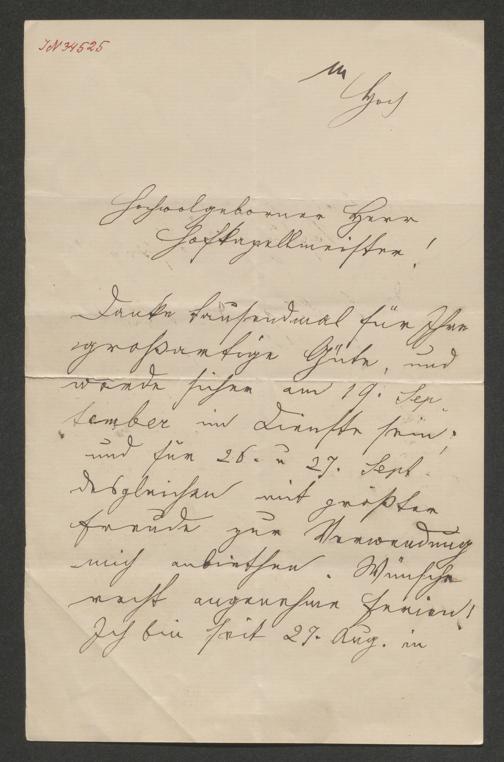 IN 34525
Hoch
Hochwolgeborner Herr
Hofkapellmeister!
Danke tausendmal für Ihre
großartige Güte, und
werde sicher am 19. Sep
tember im Dienste sein;
und für 26. u 27. Sept.
desgleichen mit größter
Freude zur Verwendung
mich anbiethen. Wünsche
recht angenehme Ferien!
Ich bin seit 27. Aug. in